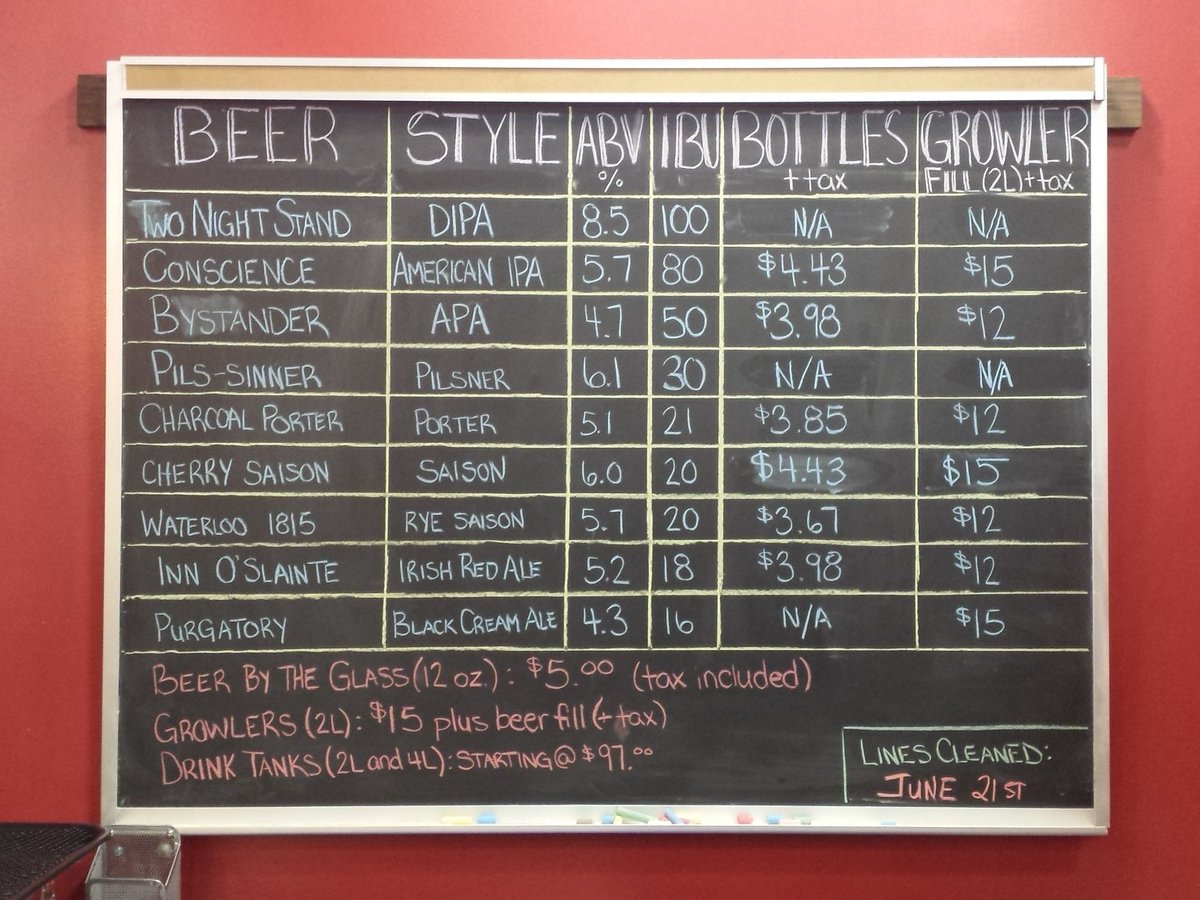 BEER STYLE ABV % IBU BOTTLES ++tax GROWLER FILL (2L)++tax
TWO NIGHT STAND DIPA 8.5 100 N/A N/A
CONSCIENCE AMERICAN IPA 5.7 80 $4.43 $15
BYSTANDER APA 4.7 50 $3.98 $12
PILS-SINNER PILSNER 6.1 30 N/A N/A
CHARCOAL PORTER PORTER 5.1 21 $3.85 $12
CHERRY SAISON SAISON 6.0 20 $4.43 $15
WATERLOO 1815 RYE SAISON 5.7 20 $3.67 $12
INN O'SLAINTE IRISH RED ALE 5.2 18 $3.98 $12
PURGATORY BLACK CREAM ALE 4.3 16 N/A $15
BEER BY THE GLASS (12 oz.): $5.00 (tax included)
GROWLERS (2L): $15 plus beer fill (+tax)
DRINK TANKS (2L and 4L): STARTING @ $97.00
LINES CLEANED:
JUNE 21ST